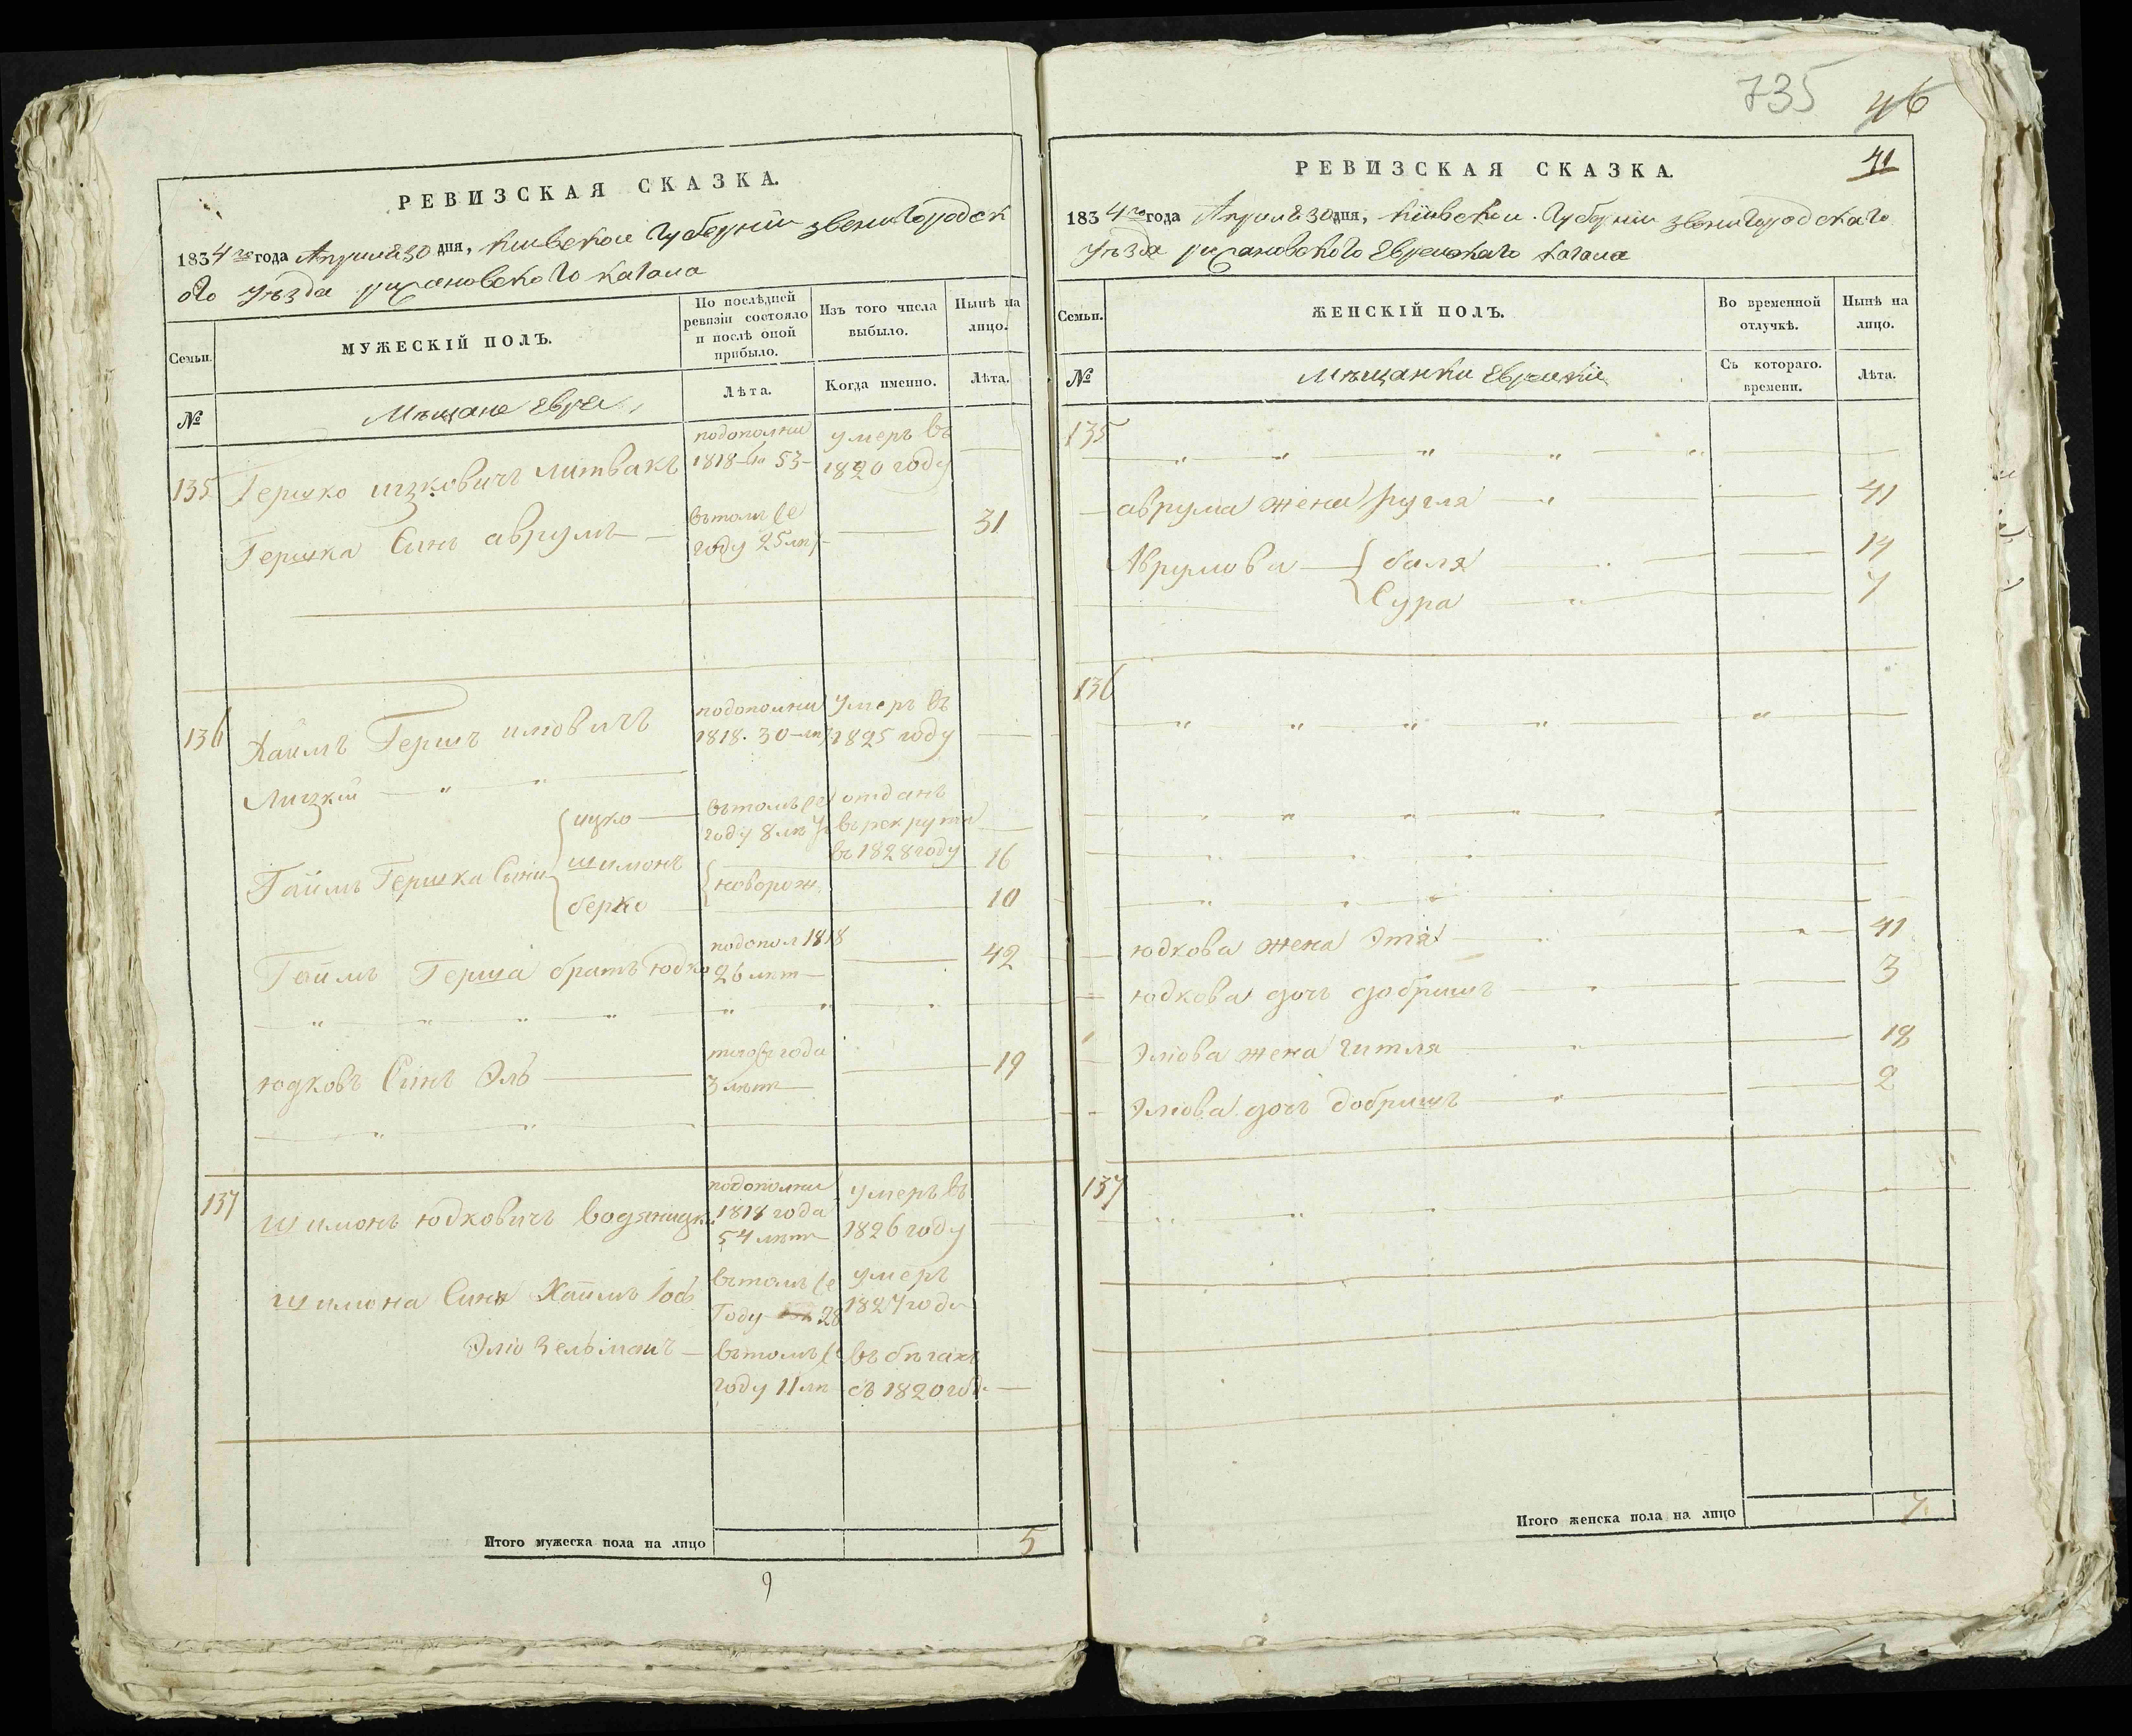 735 46
РЕВИЗСКАЯ СКАЗКА.
1834го года Апреля 30 дня, Киевской Губернии звенигородск
ого уѣзда рижановского кагала
Семьи.
МУЖЕСКІЙ ПОЛЪ.
По послѣдней ревизіи состояло и послѣ оной прибыло.
Изъ того числа выбыло.
Нынѣ на лицо.
№
Мѣщане Евреи
Лѣта.
Когда именно.
Лѣта.
135 Гершко ицковичъ литвакъ
подополни 1818 53
умеръ въ 1820 году
Гершка Синъ аврумъ
въ томъ же году 25 лѣ
31
136 Хаимъ Гершъ илювичъ
подополни 1818. 30 лѣ
умеръ въ 1825 году
Гаимъ Гершка Сини
ицко
въ томъ же году 8 лѣ
отданъ въ рекруты въ 1828 году
шимонъ
новорож.
16
берко
10
Гаимъ Герша братъ Юдко
подопол 1818 26 лѣт
42
юдковъ Синъ Эль
того же года 3 лѣт
19
137 шимонъ юдковичъ водяницки
подополни 1818 года 54 лѣт
умеръ въ 1826 году
шимона Сини Хаимъ
въ томъ же Году 28
умеръ 1827 года
Элю Зельманъ
въ томъ же году 11 лѣ
въ бѣгахъ съ 1820 год
Итого мужеска пола на лицо
5
9
РЕВИЗСКАЯ СКАЗКА.
41
1834го года Апреля 30 дня, Кіевской Губерніи звенигородскаго
уѣзда рижановского Еврейскаго кагала
Семьи.
ЖЕНСКІЙ ПОЛЪ.
Во временной отлучкѣ.
Нынѣ на лицо.
№
Мѣщанки Еврейки
Съ котораго. времени.
Лѣта.
135
аврума жена ругля 41
Аврумова баля 14
Сура 7
136
юдкова жена Этя 41
юдкова дочъ добришъ 3
Элюва жена гитля 18
Элюва дочъ добришъ 2
137
Итого женска пола на лицо
7